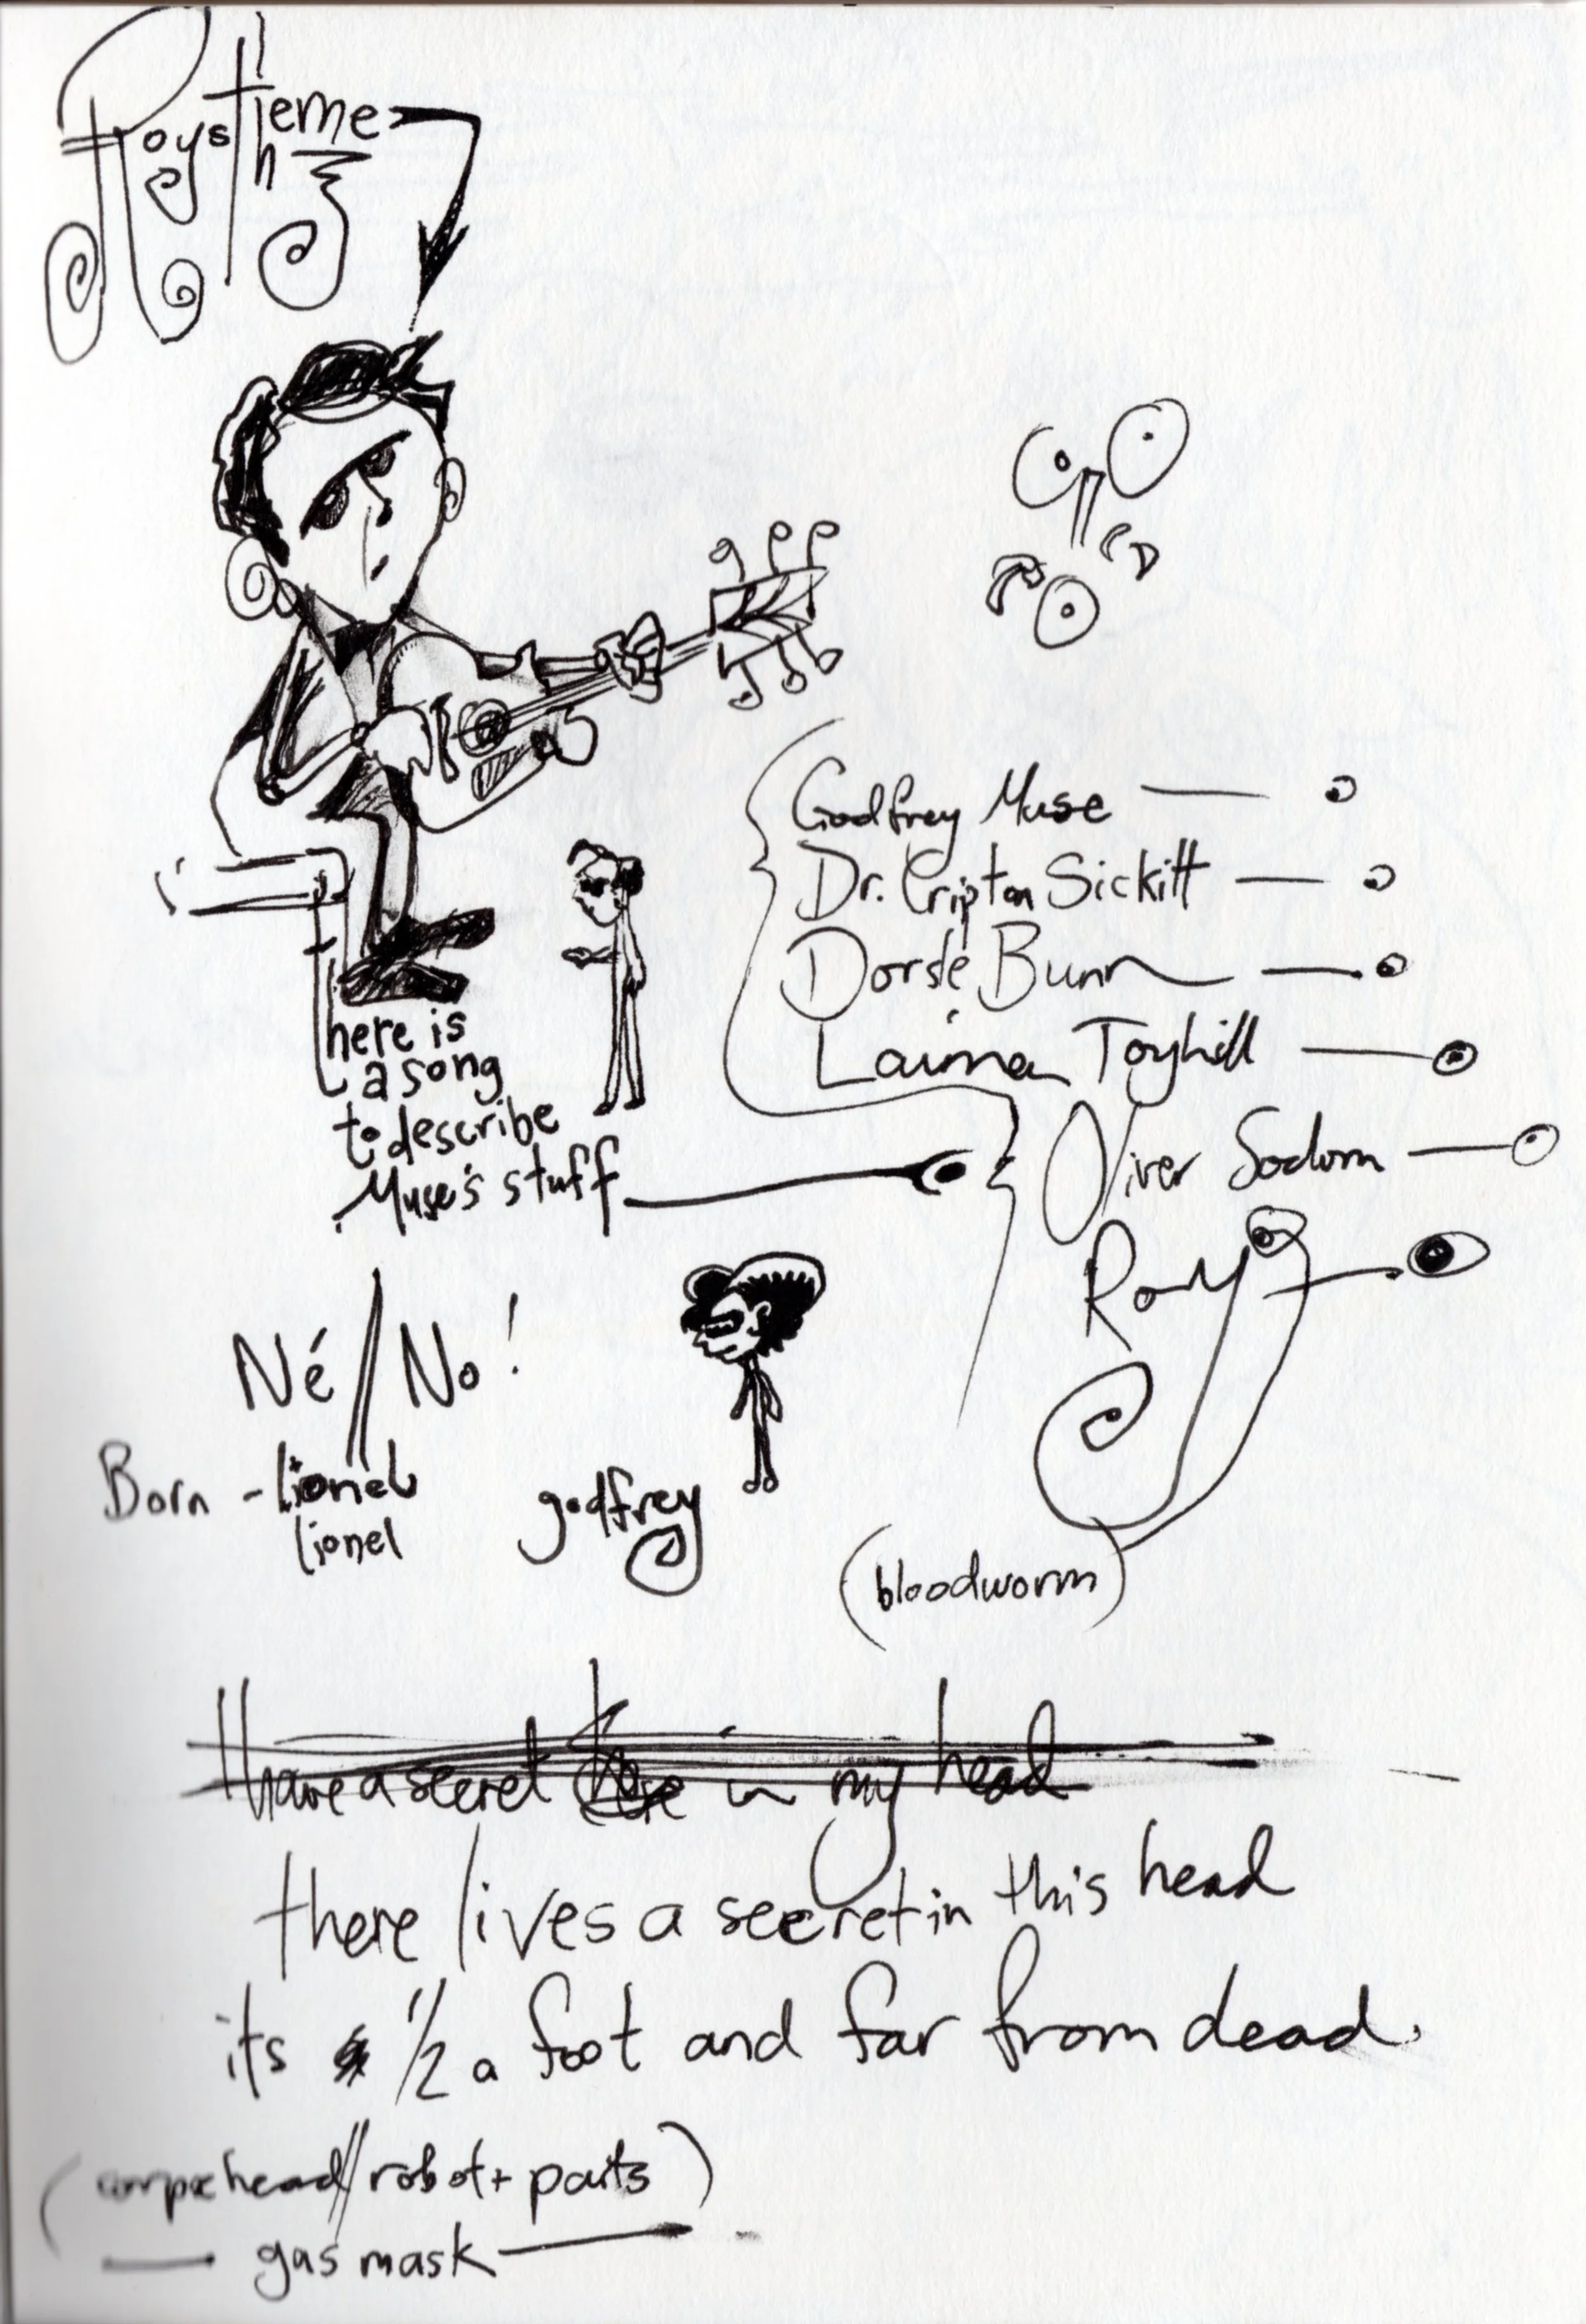 Roy's Theme
Godfrey Muse
Dr. Cripton Sickitt
Dorsé Bunn
Laima Toyhill
Oliver Sodom
Roy
here is
a song
to describe
Muse's stuff
Né // No!
Born - lionel
lionel
godfrey
(bloodworm)
I have a secret here in my head
there lives a secret in this head
its 1/2 a foot and far from dead.
(corpse head // robot + parts)
gas mask